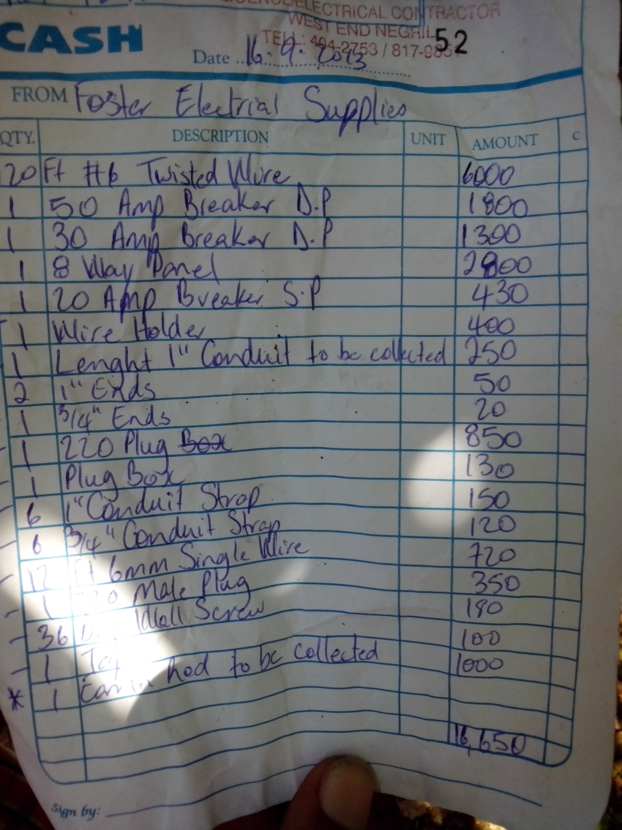 ELECTRICAL CONTRACTOR
WEST END NEGRIL
CASH
52
Date 16.9.2023
FROM Foster Electrial Supplies
QTY. DESCRIPTION UNIT AMOUNT C
20 Ft #6 Twisted Wire 6000
1 50 Amp Breaker D.P 1800
1 30 Amp Breaker D.P 1300
1 8 Way Panel 2800
1 20 Amp Breaker S.P 430
1 Wire Holder 400
1 Lenght 1" Conduit to be collected 250
2 1" Ends 50
1 3/4" Ends 20
1 220 Plug Box 850
1 Plug Box 130
6 1" Conduit Strap 150
6 3/4" Conduit Strap 120
12 Ft 6mm Single Wire 720
1 Male Plug 350
36 Wall Screw 180
1 100
* 1 to be collected 1000
16,650
Sign by: